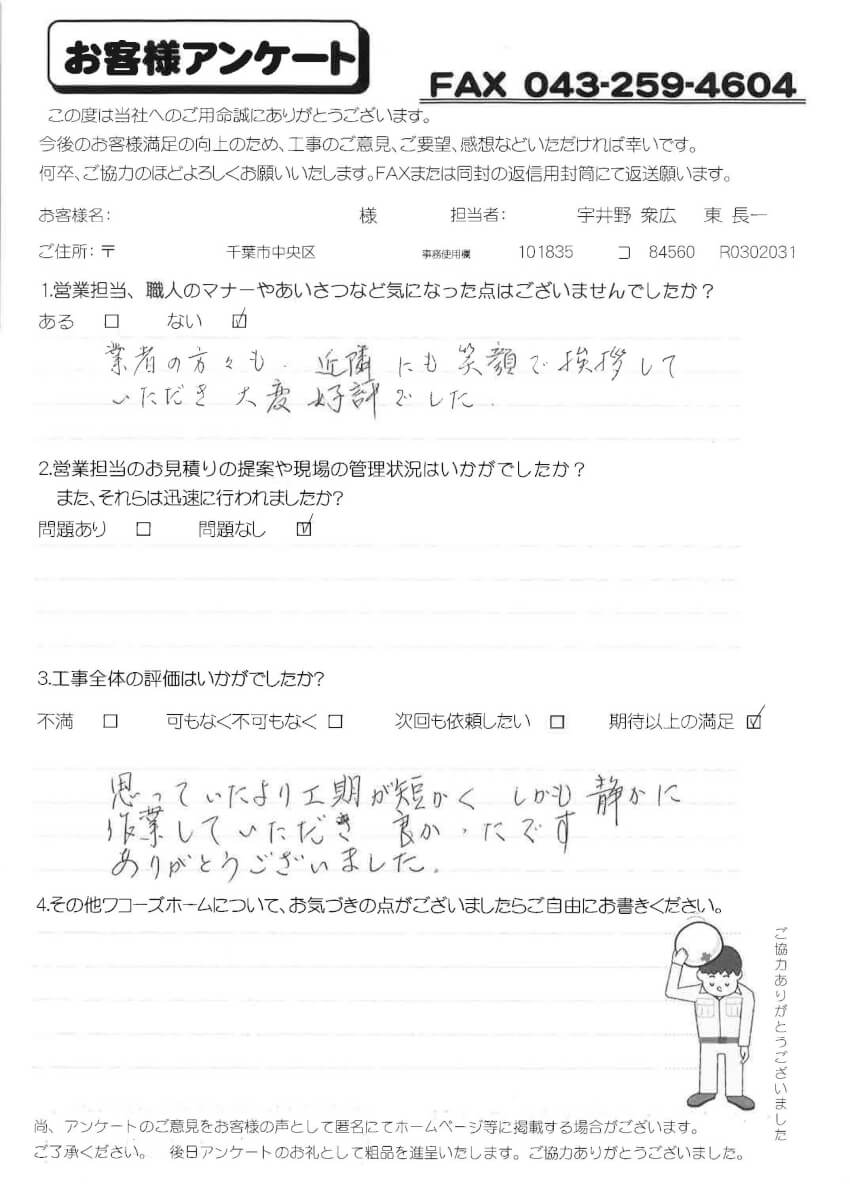 お客様アンケート
FAX 043-259-4604
この度は当社へのご用命誠にありがとうございます。
今後のお客様満足の向上のため、工事のご意見、ご要望、感想などいただければ幸いです。
何卒、ご協力のほどよろしくお願いいたします。FAXまたは同封の返信用封筒にて返送願います。
お客様名: 様 担当者: 宇井野 衆広 東 長一
ご住所:〒 千葉市中央区 事務使用欄 101835 コ 84560 R0302031
1.営業担当、職人のマナーやあいさつなど気になった点はございませんでしたか?
ある □ ない ☑
業者の方々も、近隣にも笑顔で挨拶して
いただき大変好評でした.
2.営業担当のお見積りの提案や現場の管理状況はいかがでしたか?
また、それらは迅速に行われましたか?
問題あり □ 問題なし ☑
3.工事全体の評価はいかがでしたか?
不満 □ 可もなく不可もなく □ 次回も依頼したい □ 期待以上の満足 ☑
思っていたより工期が短かく しかも静かに
作業していただき 良かったです
ありがとうございました.
4.その他ワコーズホームについて、お気づきの点がございましたらご自由にお書きください。
ご協力ありがとうございました
尚、アンケートのご意見をお客様の声として匿名にてホームページ等に掲載する場合がございます。
ご了承ください。 後日アンケートのお礼として粗品を進呈いたします。ご協力ありがとうございました。